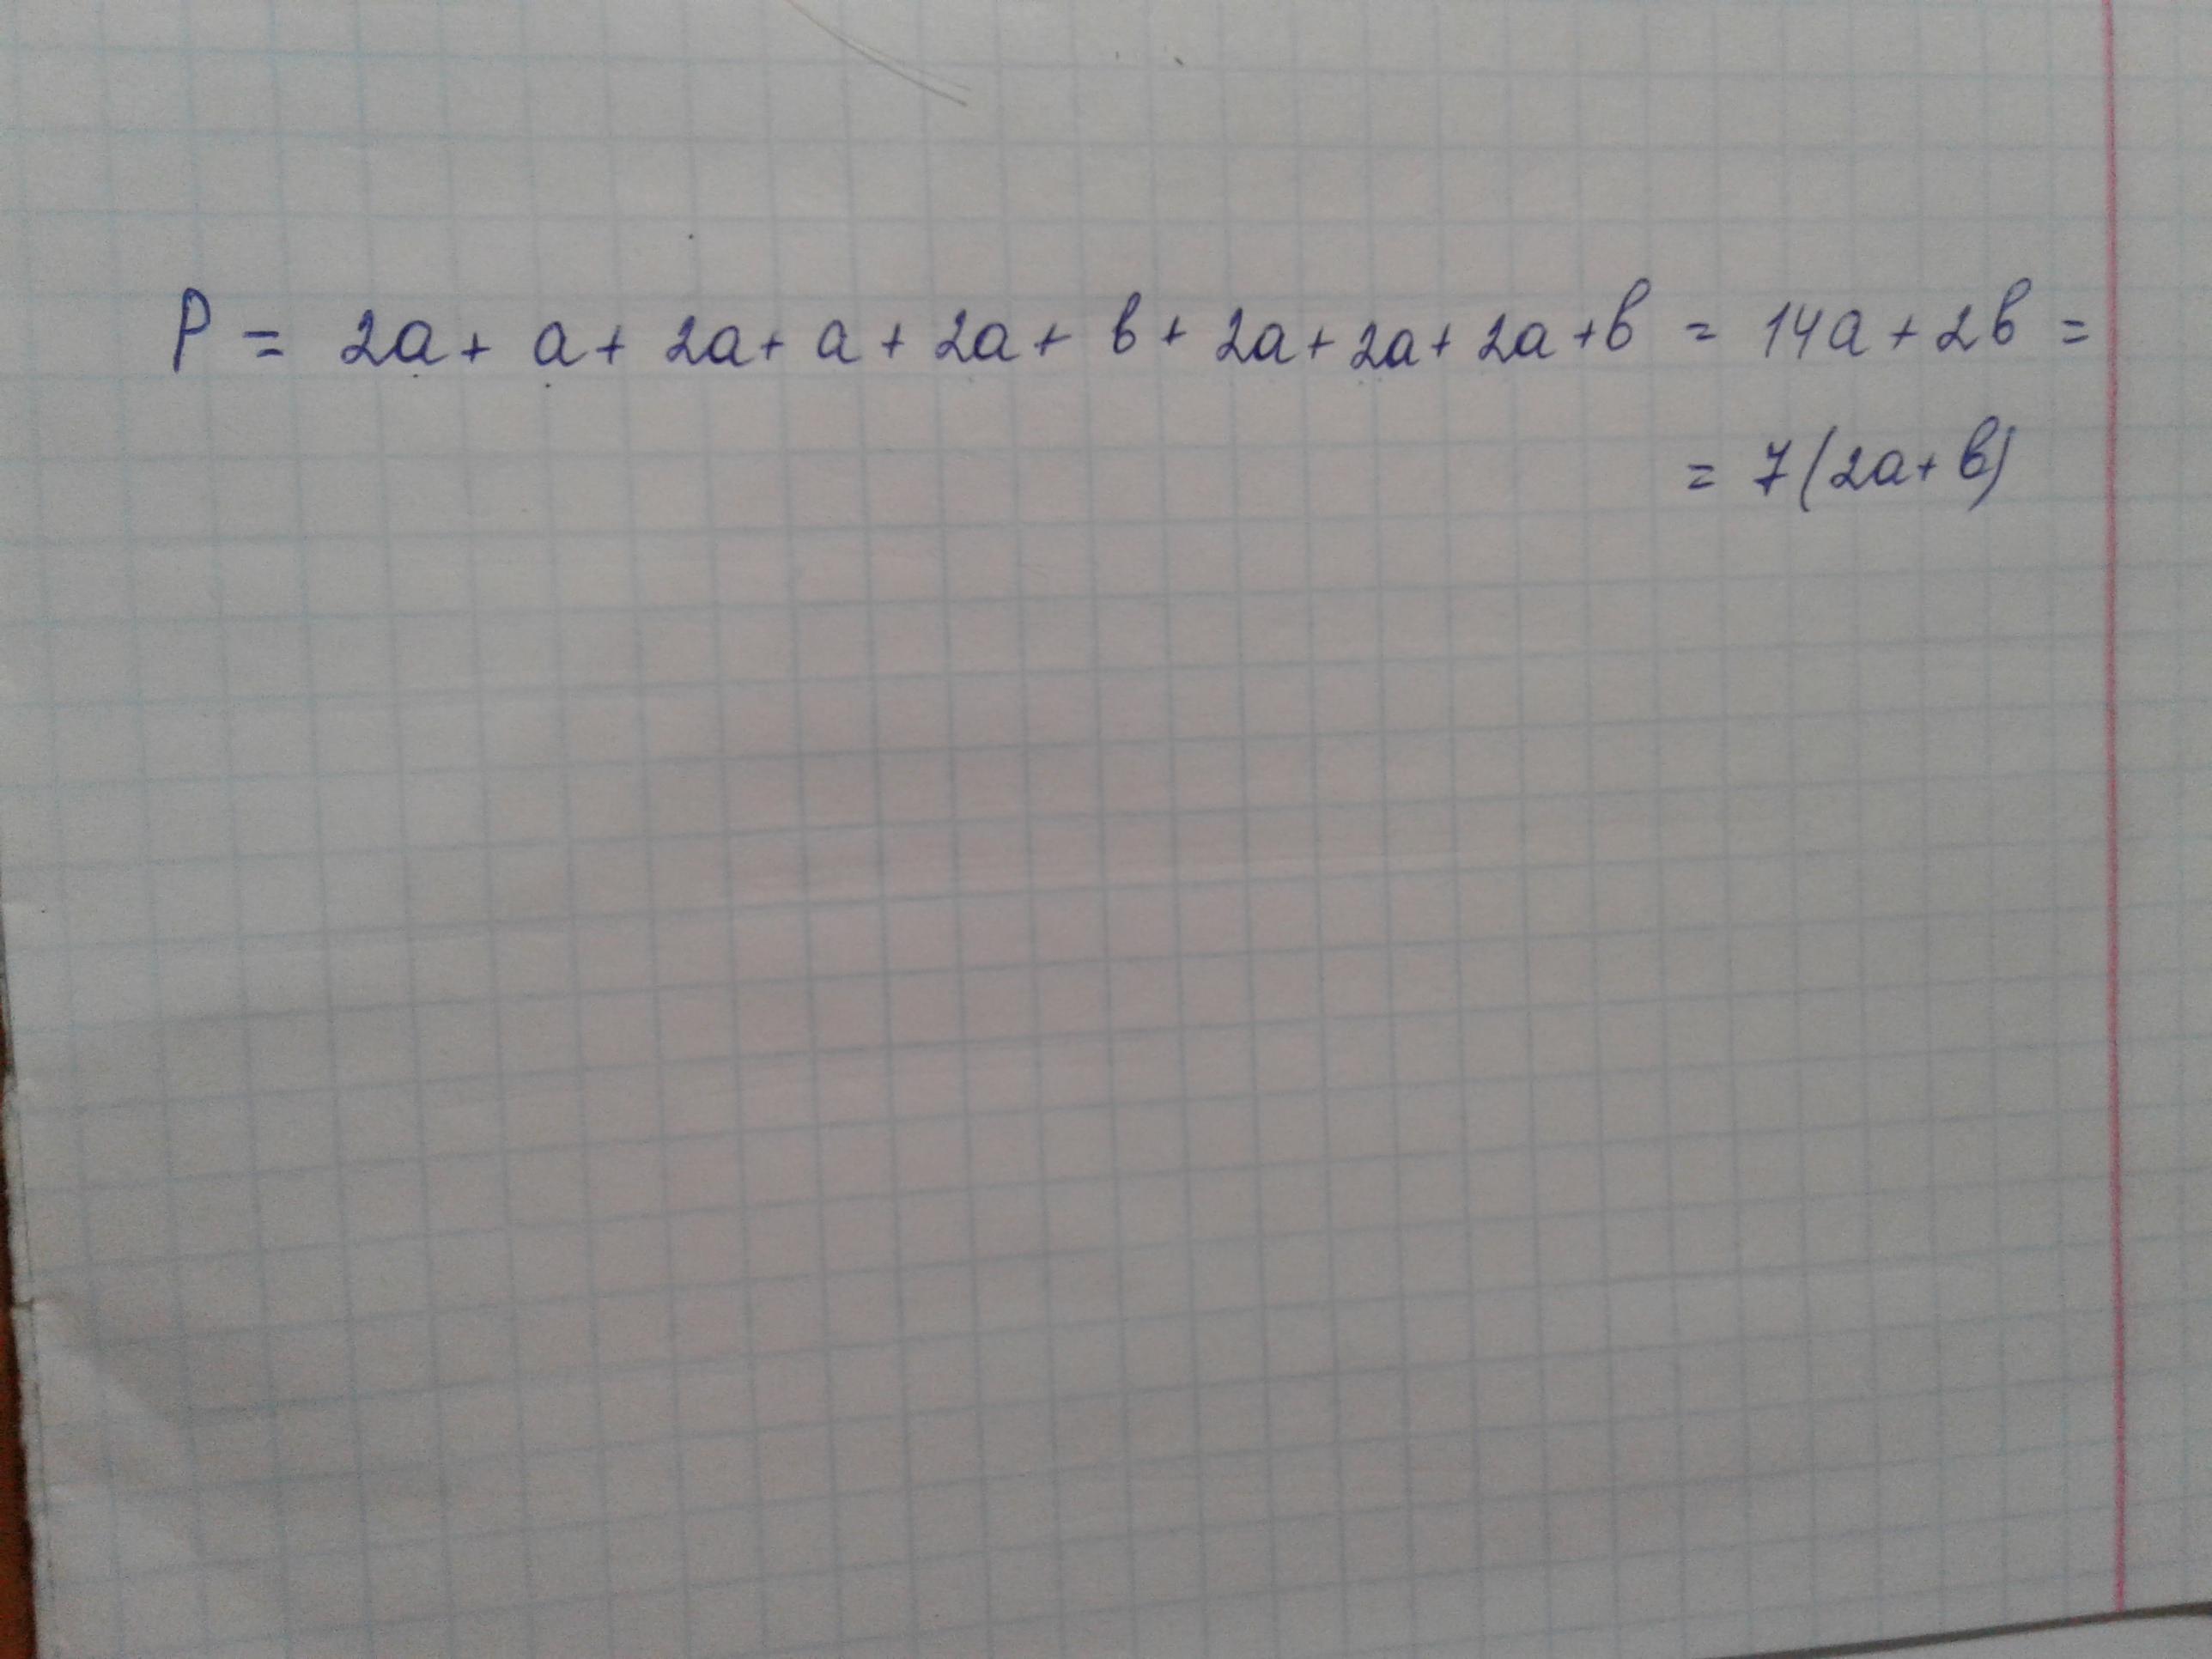 P = 2a + a + 2a + a + 2a + b + 2a + 2a + 2a + b = 14a + 2b =
= 7(2a + b)